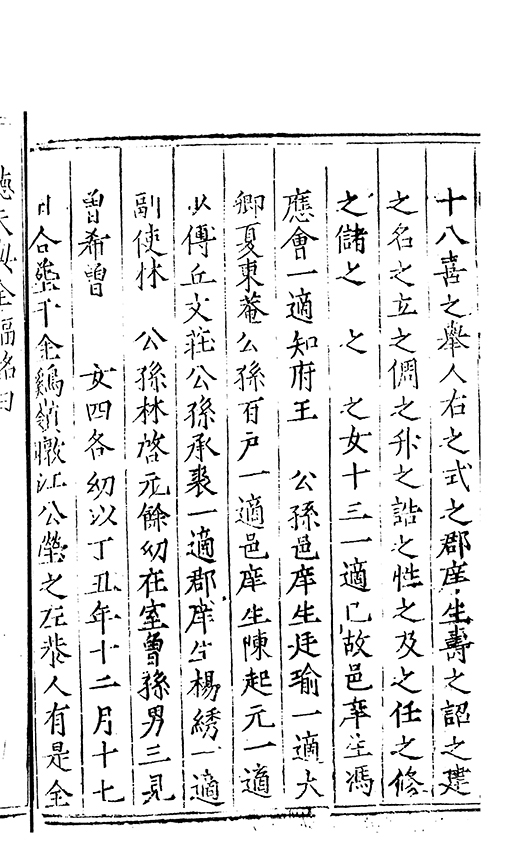 十八喜之舉人右之式之郡庠生壽之詔之建
之名之立之倜之升之誥之性之及之任之修
之儲之　之　之女十三一適已故邑庠生馮
應會一適知府王　公孫邑庠生廷瑜一適大
卿夏東菴公孫百戶一適邑庠生陳起元一適
少傅丘文莊公孫承裘一適郡庠生楊綉一適
副使林　公孫林啓元餘幼在室曾孫男三見
曾希曾　女四各幼以丁丑年十二月十七
日合塟于金鷄嶺暾江公塋之左恭人有是全
德天 全福銘曰